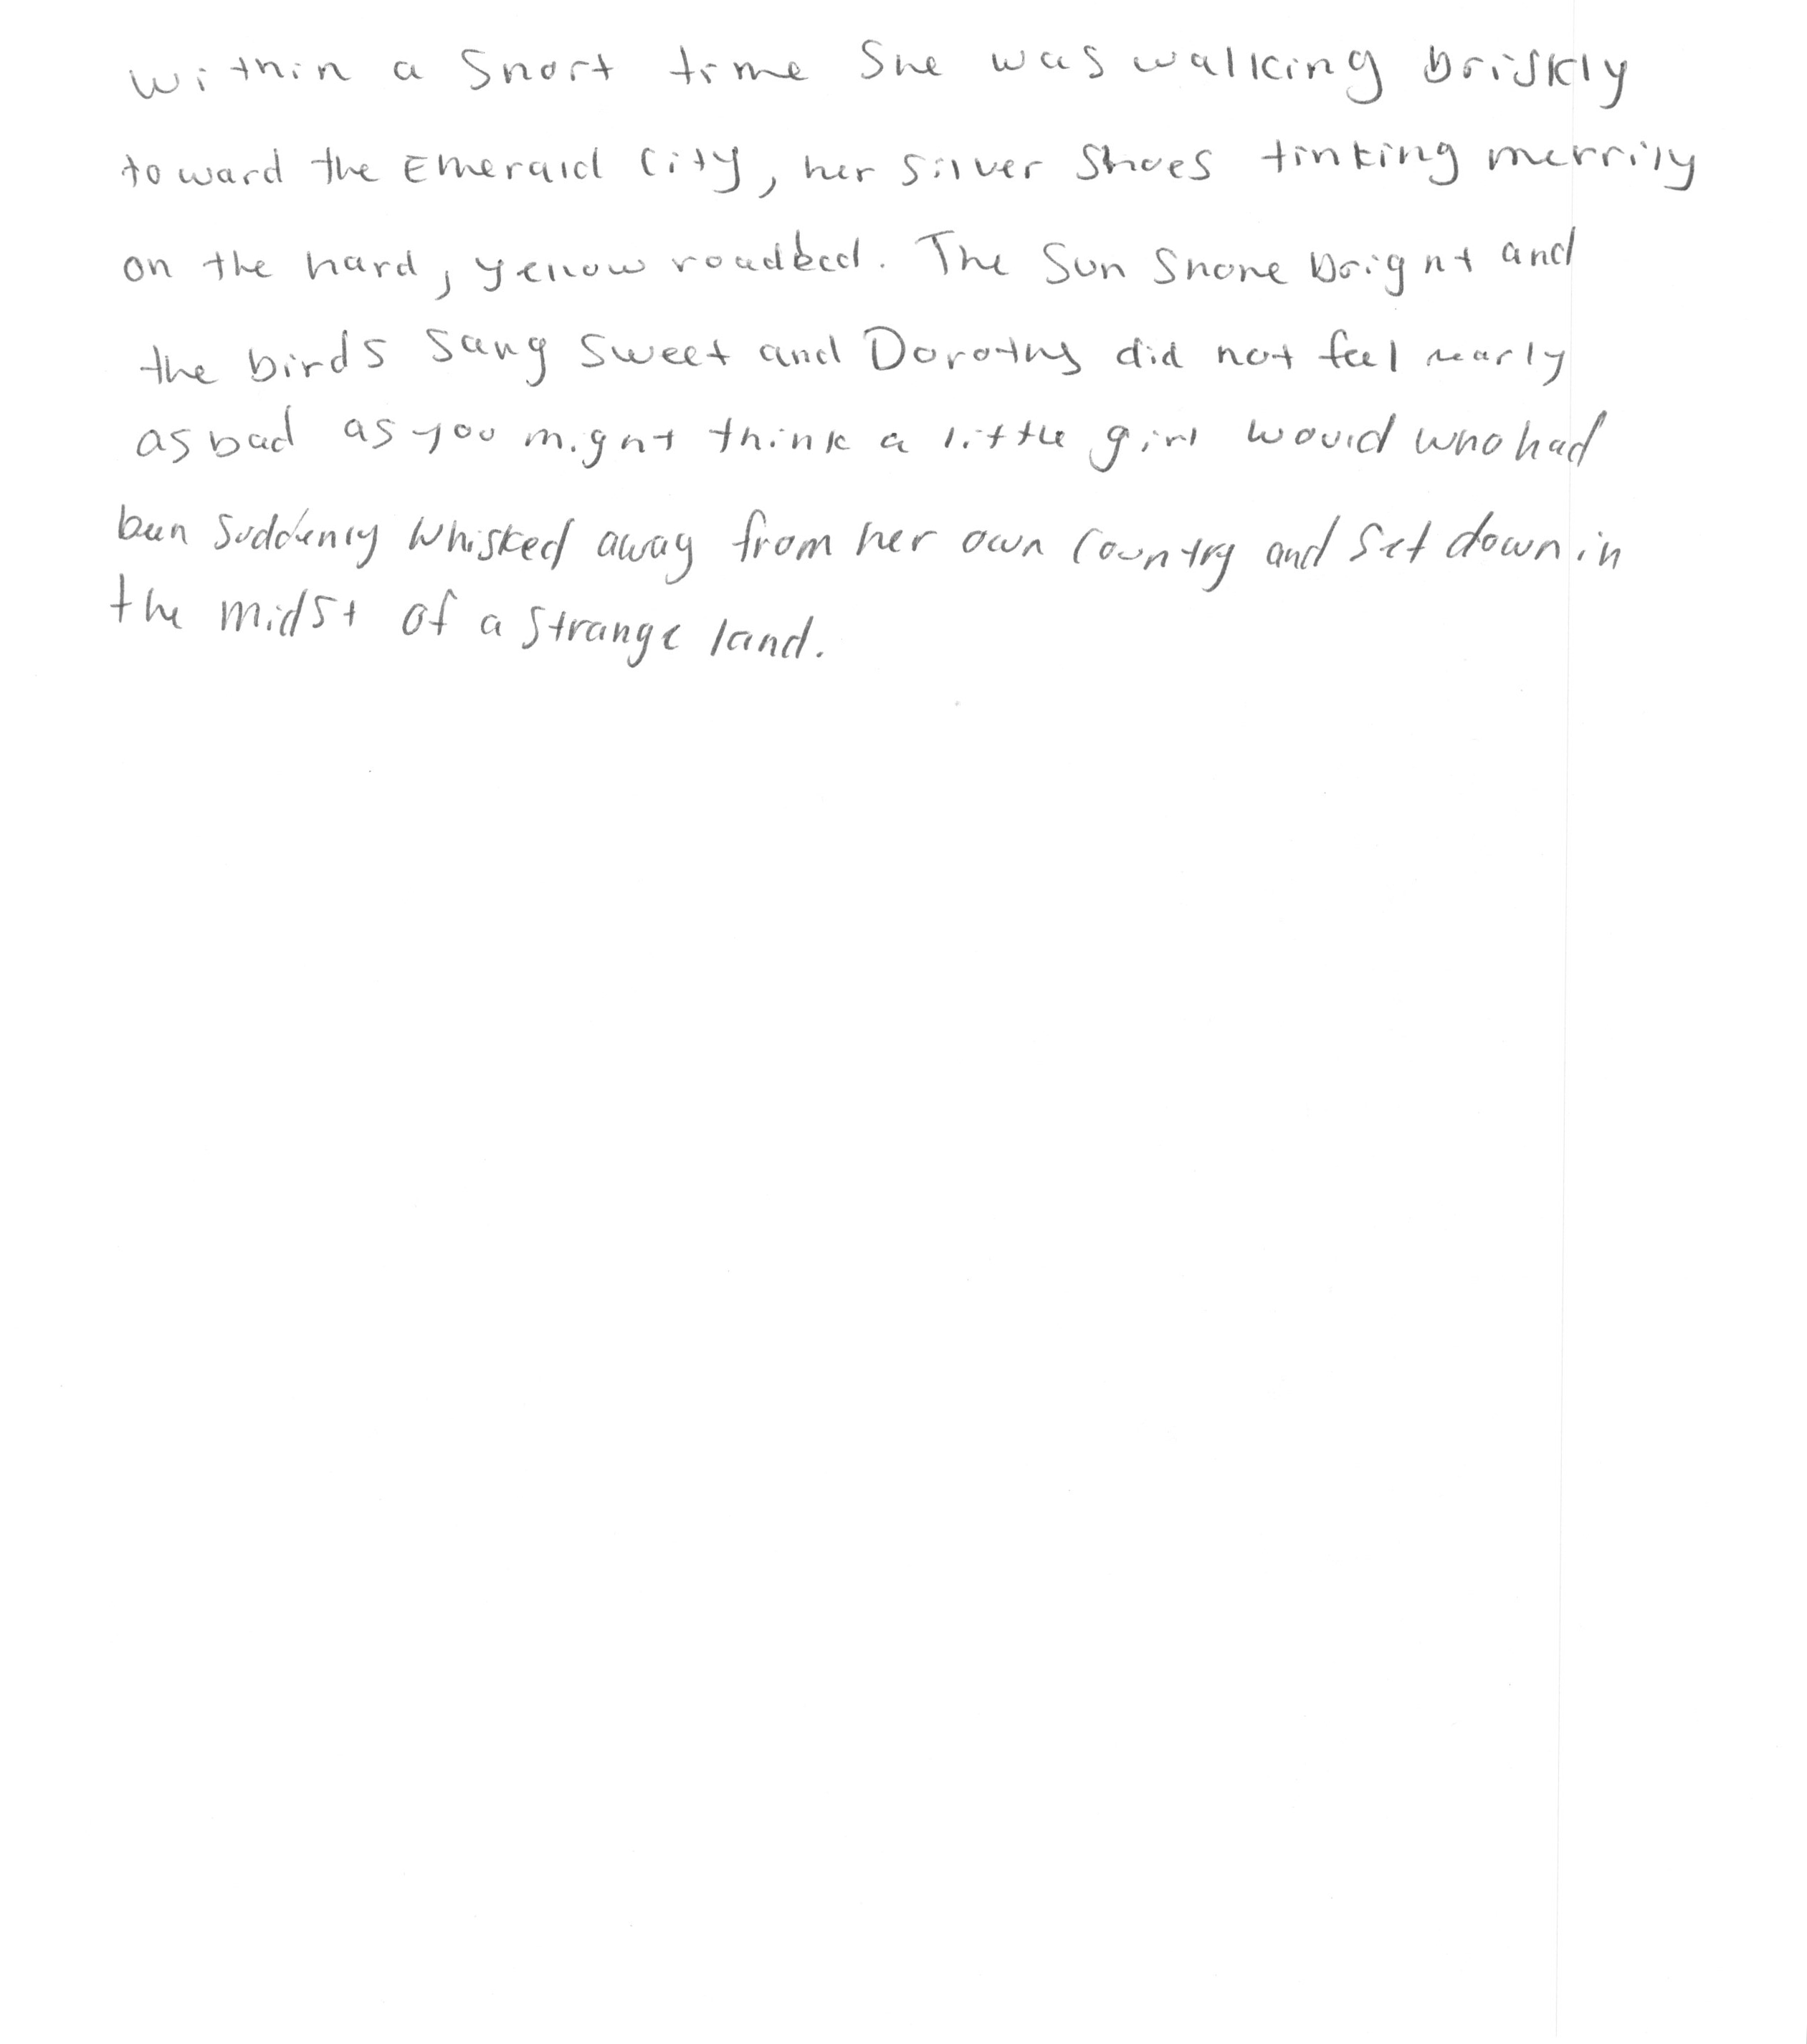 Within a short time she was walking briskly
toward the Emerald City, her silver shoes tinking merrily
on the hard, yellow roadbed. The sun shone bright and
the birds sang sweet and Dorothy did not feel nearly
as bad as you might think a little girl would who had
been suddenly whisked away from her own country and set down in
the midst of a strange land.